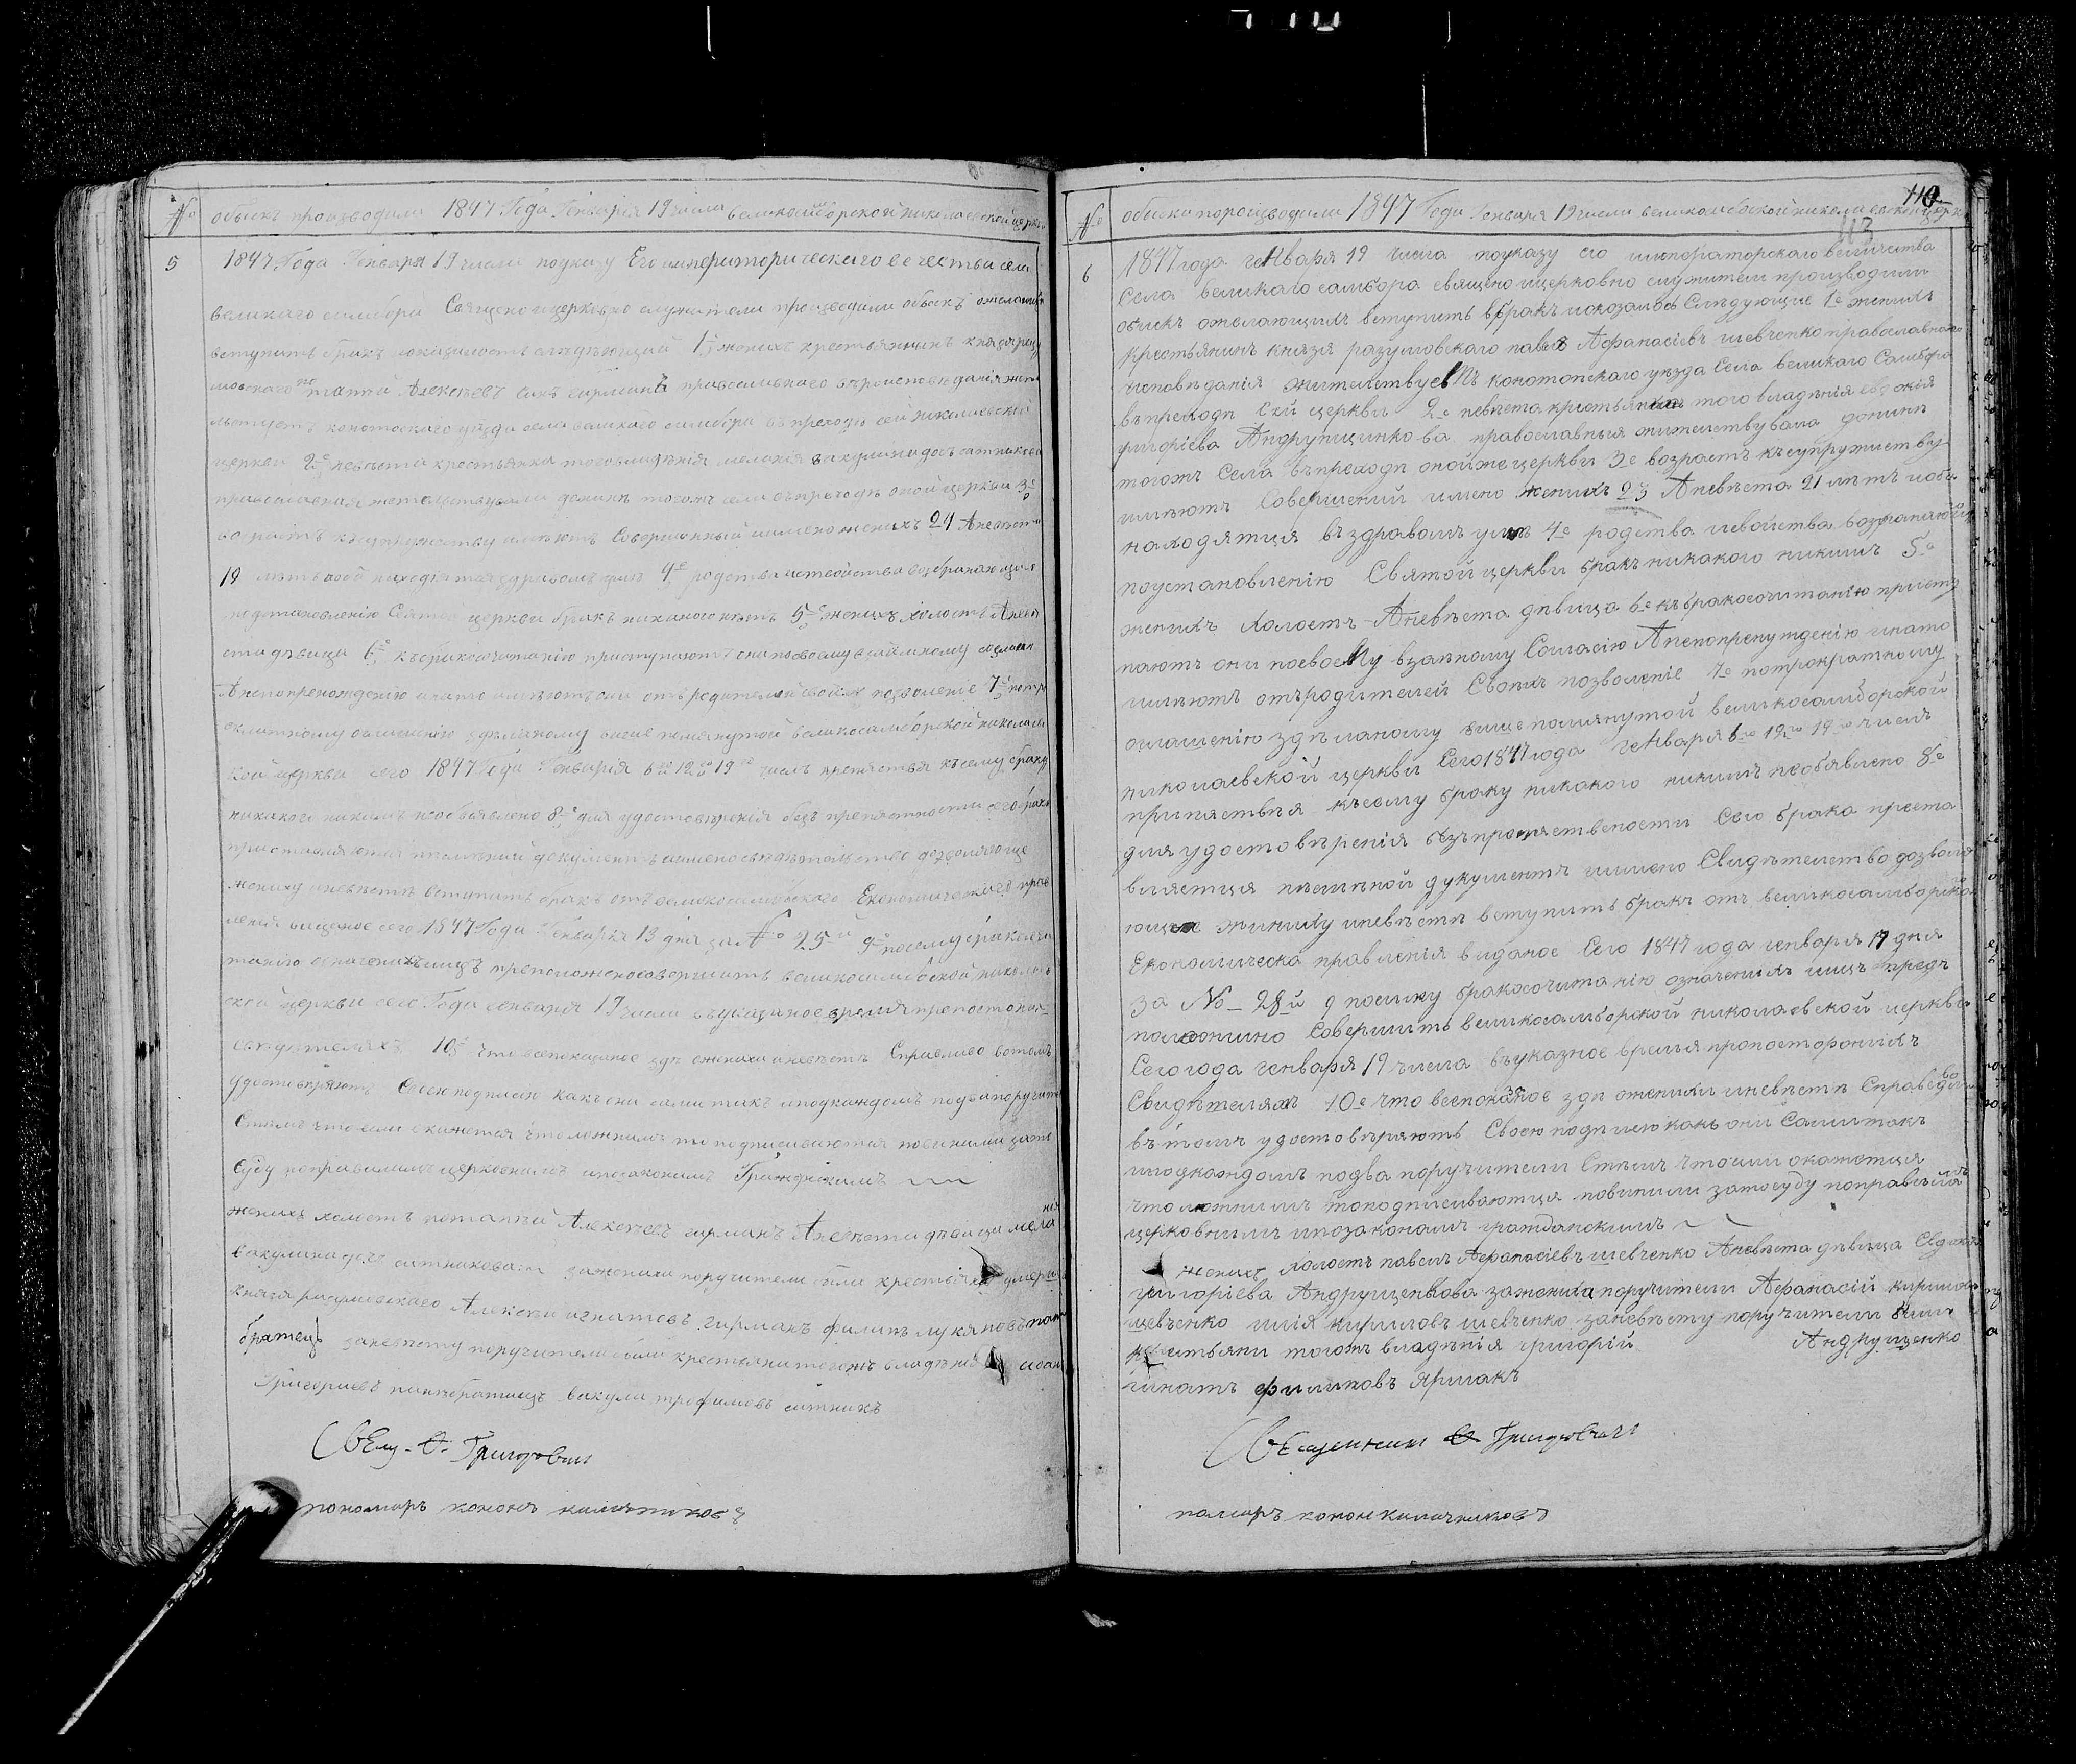 № обыскъ производили 1847 Года Генваря 19 числа великосамборской николаевской церкви
5
1847 Года Генваря 19 числа поуказу Его императорическаго вечества села
великаго самбора Священоицерковно служители производили обыскъ ожелающихъ
вступить бракъ показалость следующий 1е женихъ крестьянинъ князя разу
мовскаго потапий Алексеевъ сынъ гирманъ православнаго вероисповеданія жите
льствуетъ конотопскаго уезда села великаго самбора въприходе сей николаевской
церкви 2е невеста крестьянка тоговладенія меланія вакулина дочь ситникова
православная жительствувала донине тогожъ села въприходе оной церкви 3е
возрастъ къ супружеству имеютъ Совершенный имено женихъ 24 Аневеста
19 летъ оба находятца здравомъ уме 4е родства исвойства возбраняющаго
поустановленію Святой церкви бракъ никакого нетъ 5е женихъ холостъ Аневе
ста девица 6е къбракосочитанію приступаютъ они посвоему взаимному согласію
Анепопренуждению инато имеютъ они отъ родителей своихъ позволеніе 7е потро
екратному оглашенію зделаному више помянутой великосамборской николаев
кой церкви сего 1847 Года Генваря 6го 12го 19го числъ препятствія къ сему браку
никакого никемъ необъявлено 8е для удостоверенія безъ препятности сего брака
приставляютца писмений документъ имено свидетельство дозволяюще
жениху иневесте вступить бракъ отъ великосамборского Економического прав
ленія виданое сего 1847 Года Генваря 13 дня за № 25й 9е посему бракосочи
танію означенихъ лицъ преположеносовершить великосамборской николаев
ской церкви сего Года генваря 19 числа въуказаное время препостороних
свидетеляхъ 10е что всепоказаное зде ожених иневесте Справливо вотомъ
удостоверяютъ Своею подписю какъ они сами такъ иподкаждомъ подва поручит
Стемъ что если окажется что ложнимъ то подписивающия повинили зато
Суду поправиламъ церковнимъ ипозаконамъ Гражданскимъ
женихъ холостъ потапий Алексеевъ гирманъ Аневеста девица мела
нія
вакулина дочь ситникова зажениха поручители были крестьяне умери
князя разумовскаго Алексей игнатовъ гирманъ филипъ лукяновъ пан
братецъ заневесту поручители были крестьяни тогожъ владенія иван
Григориевъ панибратецъ вакула трофимовъ ситникъ
Свящ. Ѳ. Григорович
пономаръ кононъ калачниковъ
110
113
№ обыски пороизводили 1847 Года Генваря 19 числа великосамбоской николаевской церкви
6
1847 года генваря 19 числа поуказу его империраторскаго величества
Села великаго самбора священо ицерковно служители производили
обискъ ожелающихъ вступить вбракъ показалось Следующие 1е женихъ
крестьянинъ князя разумовского павелъ Афанасіевъ шевченко православнаго
исповеданія жителствуетъ конотопскаго уезда Села великаго Самбора
въприходе сей церкви 2е невеста крестьянка того владенія евдокія
григоріева Андрущинкова православныя жителствувала донине
тогожъ Села въприходе онойже церкви 3е возрастъ късупружеству
имеютъ Совершений имено женихъ 23 Аневеста 21 летъ и оба
находятця въздравомъ уме 4е родства исвойства возбраняющаго
поустановленію Святой церкви бракъ никакого никимъ 5е
женихъ холостъ Аневеста девица 6е къбракосочитанію присту
паютъ они посвоему взаемному Согласію Анепопренужденію инато
имеютъ отъродителей Своихъ позволеніе 7е потрократному
оглашенію зделаному више помянутой великосамборской
николаевской церкви Сего 1847 года генваря 6го 12го 19го числъ
припятствія късему браку никакого никимъ необявлено 8е
для удостоверенія безъпрепятствености Сего брака предста
вляетця писменой дукументъ имено Свидетелство дозволя
юще жениху иневесте вступить бракъ отъ великосамборско
Економическа правленія виданое Сего 1847 года генваря 17 дня
за № 28й 9 посему бракосочитанію означенихъ лицъ предъ
положино Совершить великосамборской николаевской церкви
Сего года генваря 19 числа въуказное время припосторонихъ
Свидетеляхъ 10е что всепоказаное зде ожених иневесте Справедливо
въ томъ удостоверяютъ Своею подписю какъ они Сами такъ
иподкаждомъ подва поручители Стемъ что если окажетця
что ложнимъ топодписивающия повинили затосуду поправиламъ
церковнимъ ипозаконамъ гражданскимъ
женихъ Холостъ павелъ Афанасіевъ шевченко Аневеста девица Евдокія
григоріева Андрущенкова зажениха поручители Афанасій кириловъ
шевченко илія кириловъ шевченко заневесту поручители били
крестьяни тогожъ владенія григорій Андрущенко
игнатъ филиповъ Ярмакъ
Священникъ Ѳ Григорович
памаръ конон калачниковъ